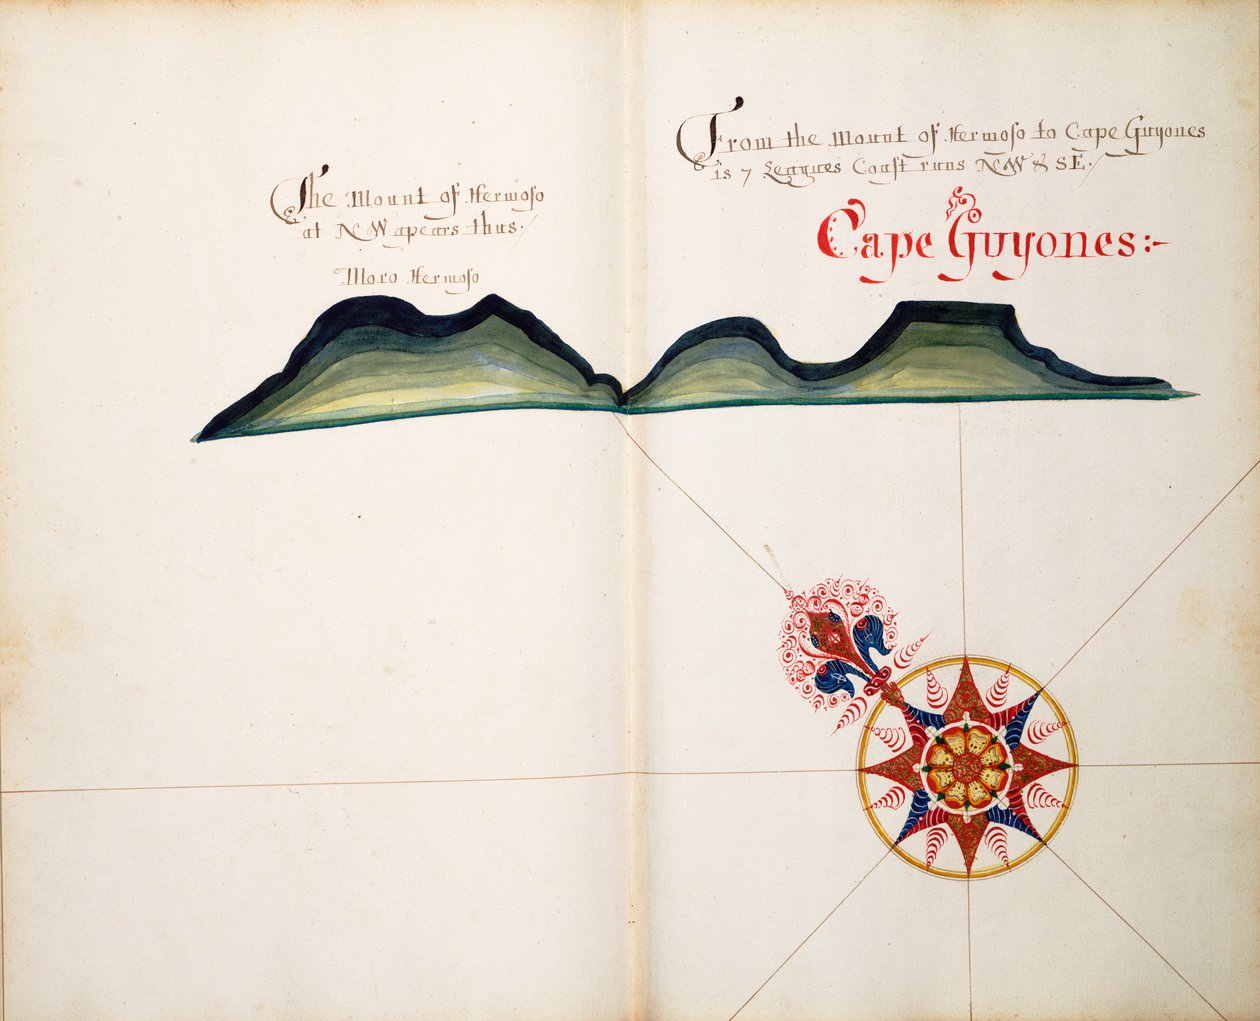 The Mount of Hermoso
at NW apears thus.
Moro Hermoso
From the Mount of Hermoso to Cape Guyones
is 7 Leagues Coast runs NW & SE.
Cape Guyones:-